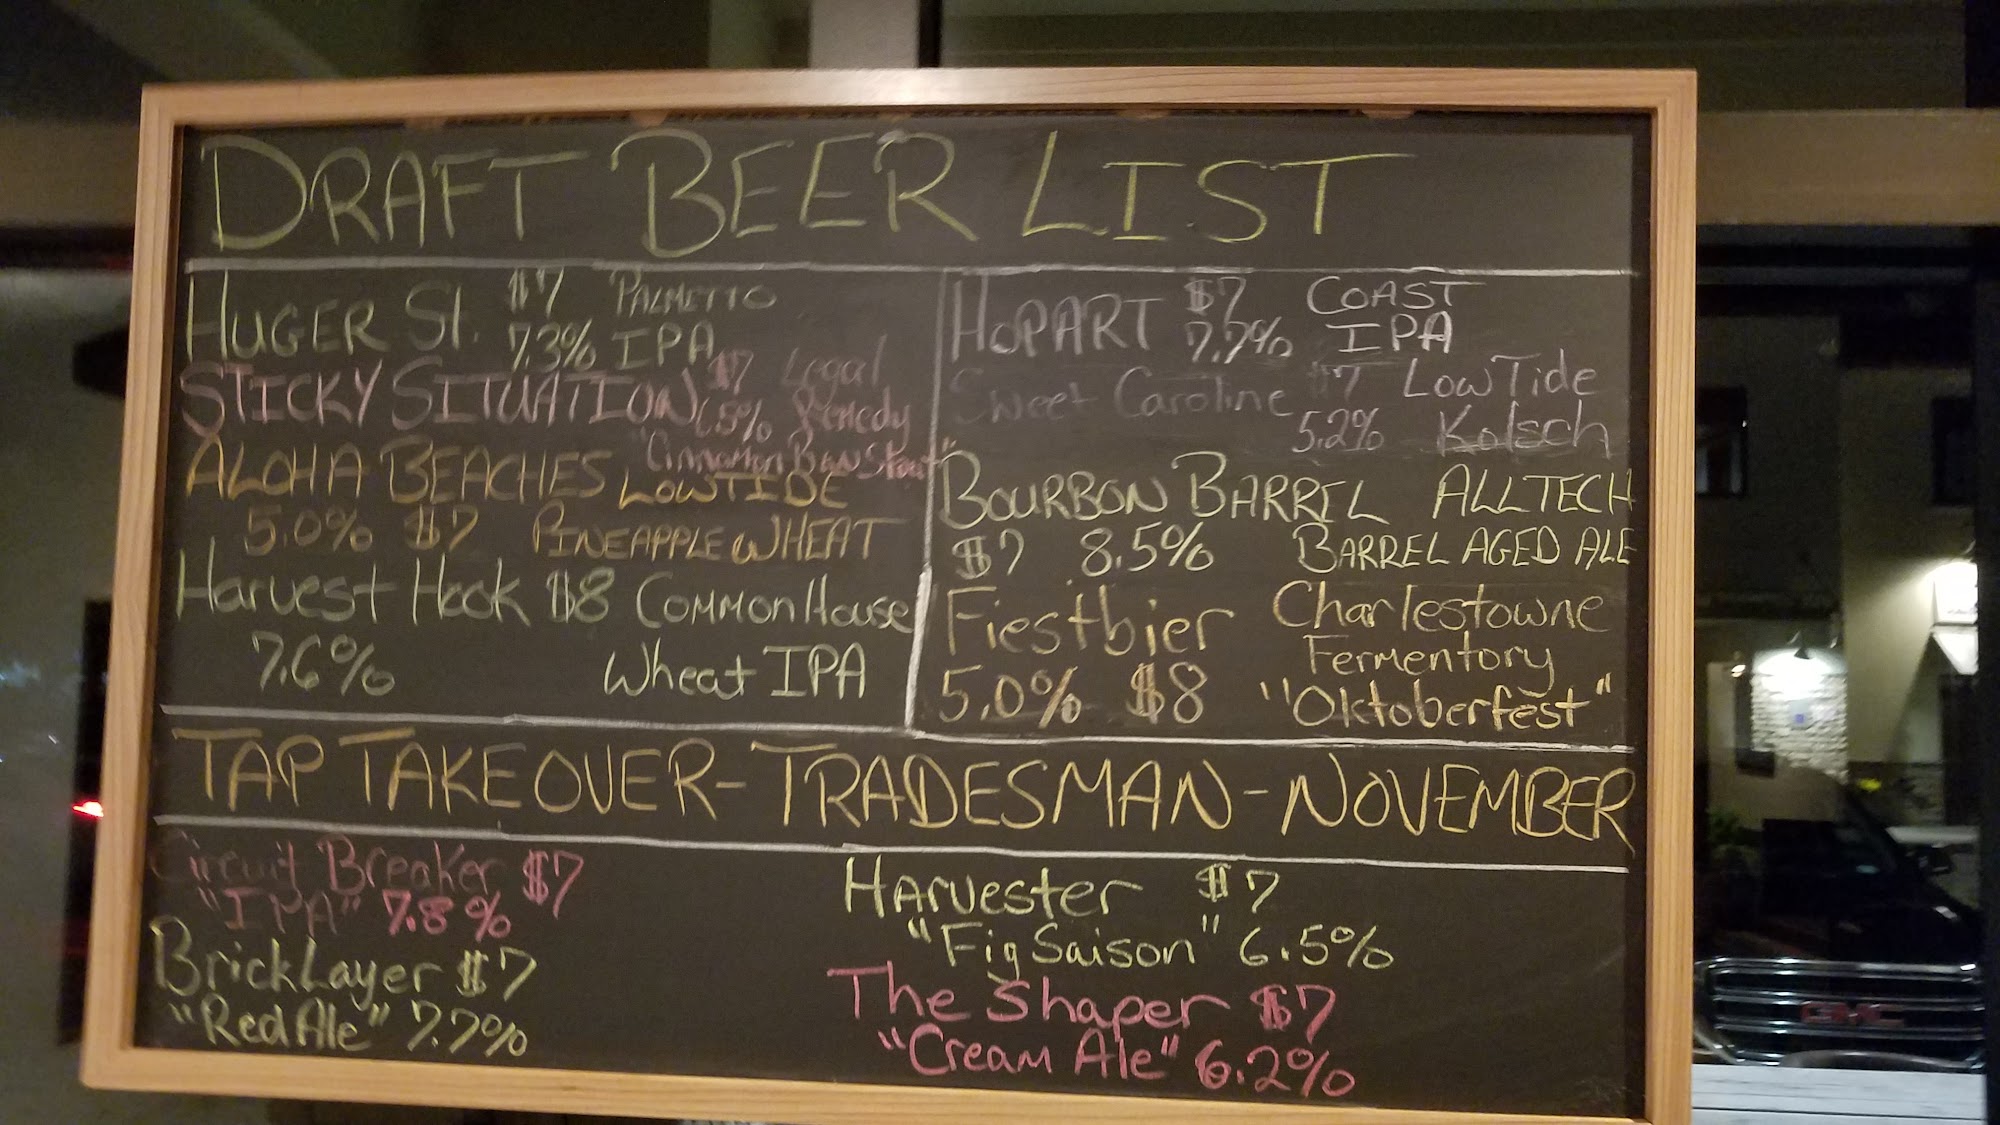 DRAFT BEER LIST
HUGER St. $7 PALMETTO
7.3% IPA
STICKY SITUATION $7 Legal
6.5% Remedy
"Cinnamon Bun Stout"
ALOHA BEACHES LOWTIDE
5.0% $7 PINEAPPLE WHEAT
Harvest Hook $8 Common House
7.6% Wheat IPA
HOPART $7 COAST
7.7% IPA
Sweet Caroline $7 LowTide
5.2% Kolsch
BOURBON BARREL ALLTECH
$7 8.5% BARREL AGED ALE
Fiestbier Charlestowne
Fermentory
5.0% $8 "Oktoberfest"
TAP TAKEOVER-TRADESMAN-NOVEMBER
Circuit Breaker $7
"IPA" 7.8%
BrickLayer $7
"Red Ale" 7.7%
HArvester $7
"Fig Saison" 6.5%
The Shaper $7
"Cream Ale" 6.2%
GMC